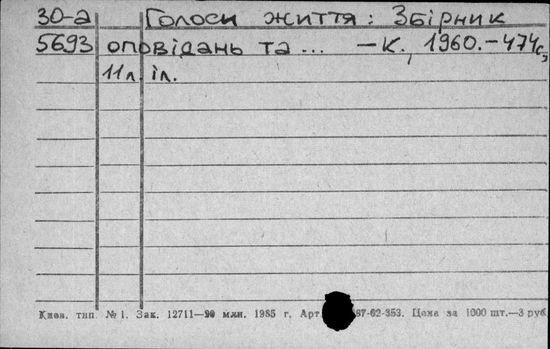 30-а Голоси життя: Збірник
5693 оповідань та ... – К., 1960. – 474с,
11л іл.
Киев. тип. № 1. Зак. 12711— млн. 1985 г. Арт 87-62-353. Цена за 1000 шт.—3 руб